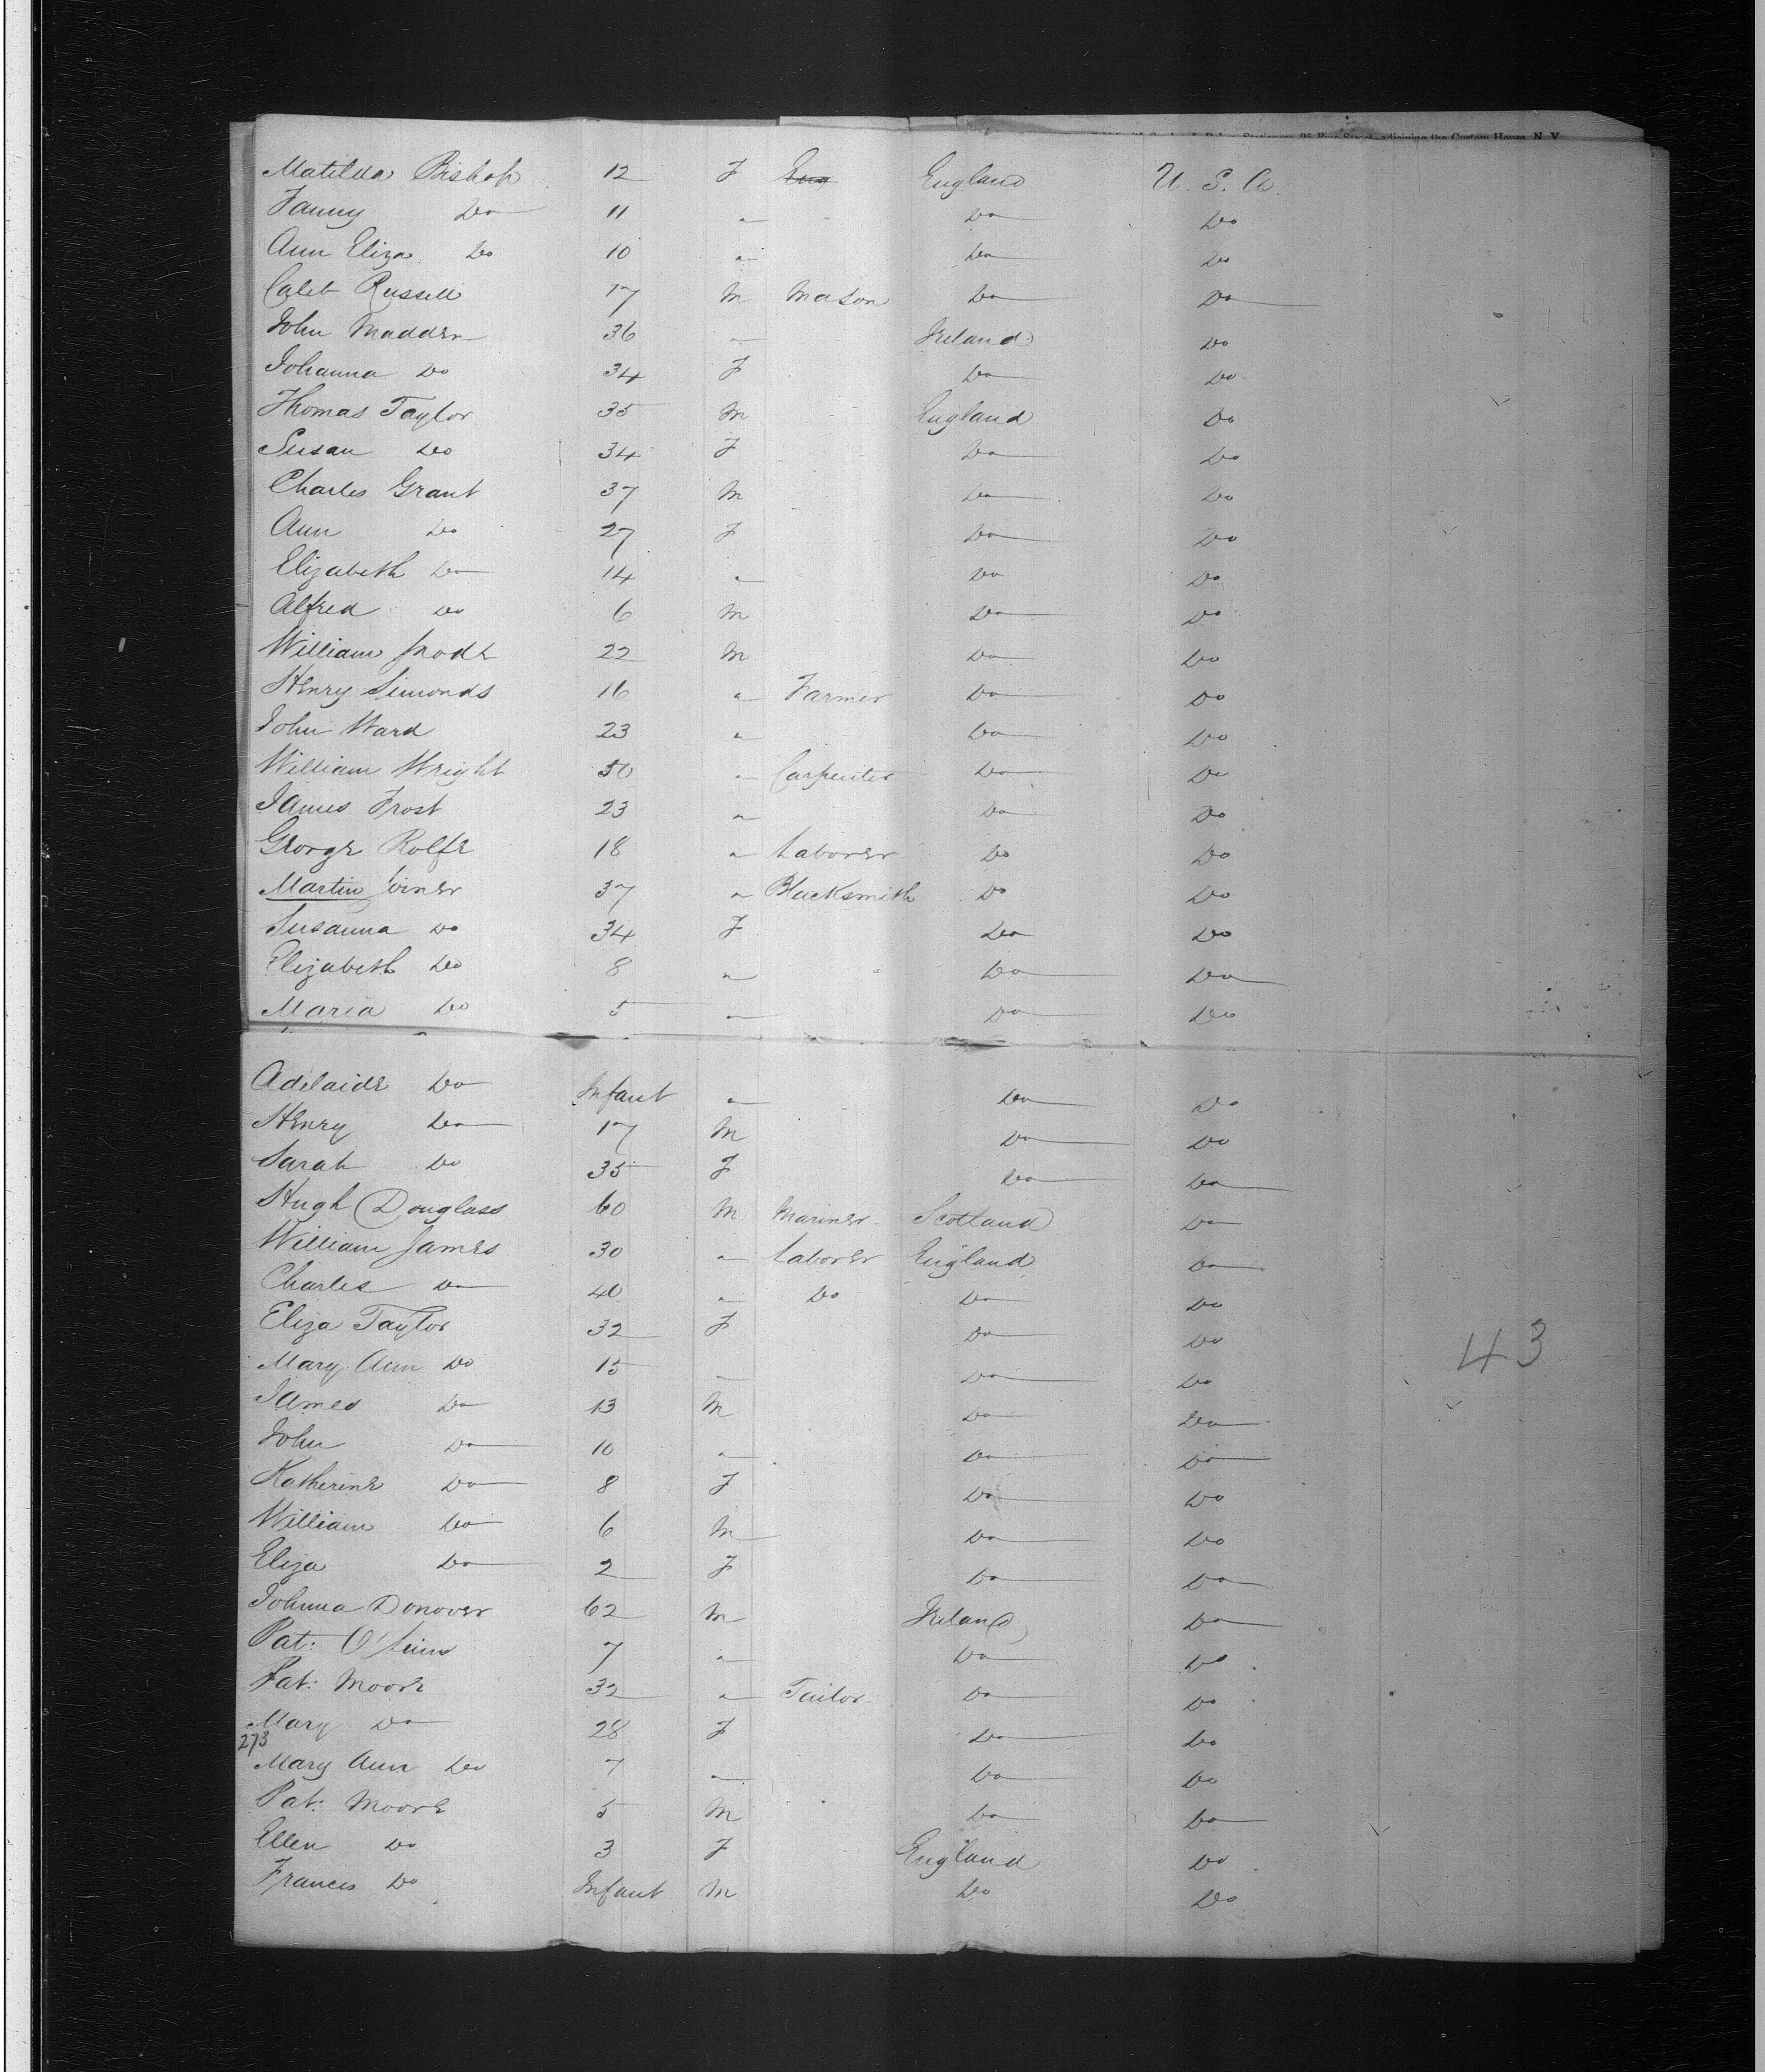 Stationers, 95 Pine Street, adjoining the Custom House, N. Y.
Matilda Bishop 12 F Eng England U. S. A.
Fanny Do 11 " Do Do
Ann Eliza Do 10 " Do Do
Caleb Russell 17 M Mason Do Do
John Madden 36 " Ireland Do
Johanna Do 34 F Do Do
Thomas Taylor 35 M England Do
Susan Do 34 F Do Do
Charles Grant 37 M Do Do
Ann Do 27 F Do Do
Elizabeth Do 14 " Do Do
Alfred Do 6 M Do Do
William 22 M Do Do
Henry Simonds 16 " Farmer Do Do
John Ward 23 " Do Do
William Wright 50 " Carpenter Do Do
James Frost 23 " Do Do
George Rolfe 18 " Laborer Do Do
Martin Joiner 37 " Blacksmith Do Do
Susanna Do 34 F Do Do
Elizabeth Do 8 " Do Do
Maria Do 5 " Do Do
Adelaide Do Infant " Do Do
Henry Do 17 M Do Do
Sarah Do 35 F Do Do
Hugh Douglass 60 M Mariner Scotland Do
William James 30 " Laborer England Do
Charles Do 40 " Do Do Do
Eliza Taylor 32 F Do Do
43
Mary Ann Do 15 " Do Do
James Do 13 M Do Do
John Do 10 " Do Do
Katherine Do 8 F Do Do
William Do 6 M Do Do
Eliza Do 2 F Do Do
Johnna Donover 62 M Ireland Do
Pat: 7 " Do Do
Pat: Moore 32 " Tailor Do Do
Mary Do 28 F Do Do
273
Mary Ann Do 7 " Do Do
Pat: Moore 5 M Do Do
Ellen Do 3 F England Do
Frances Do Infant M Do Do